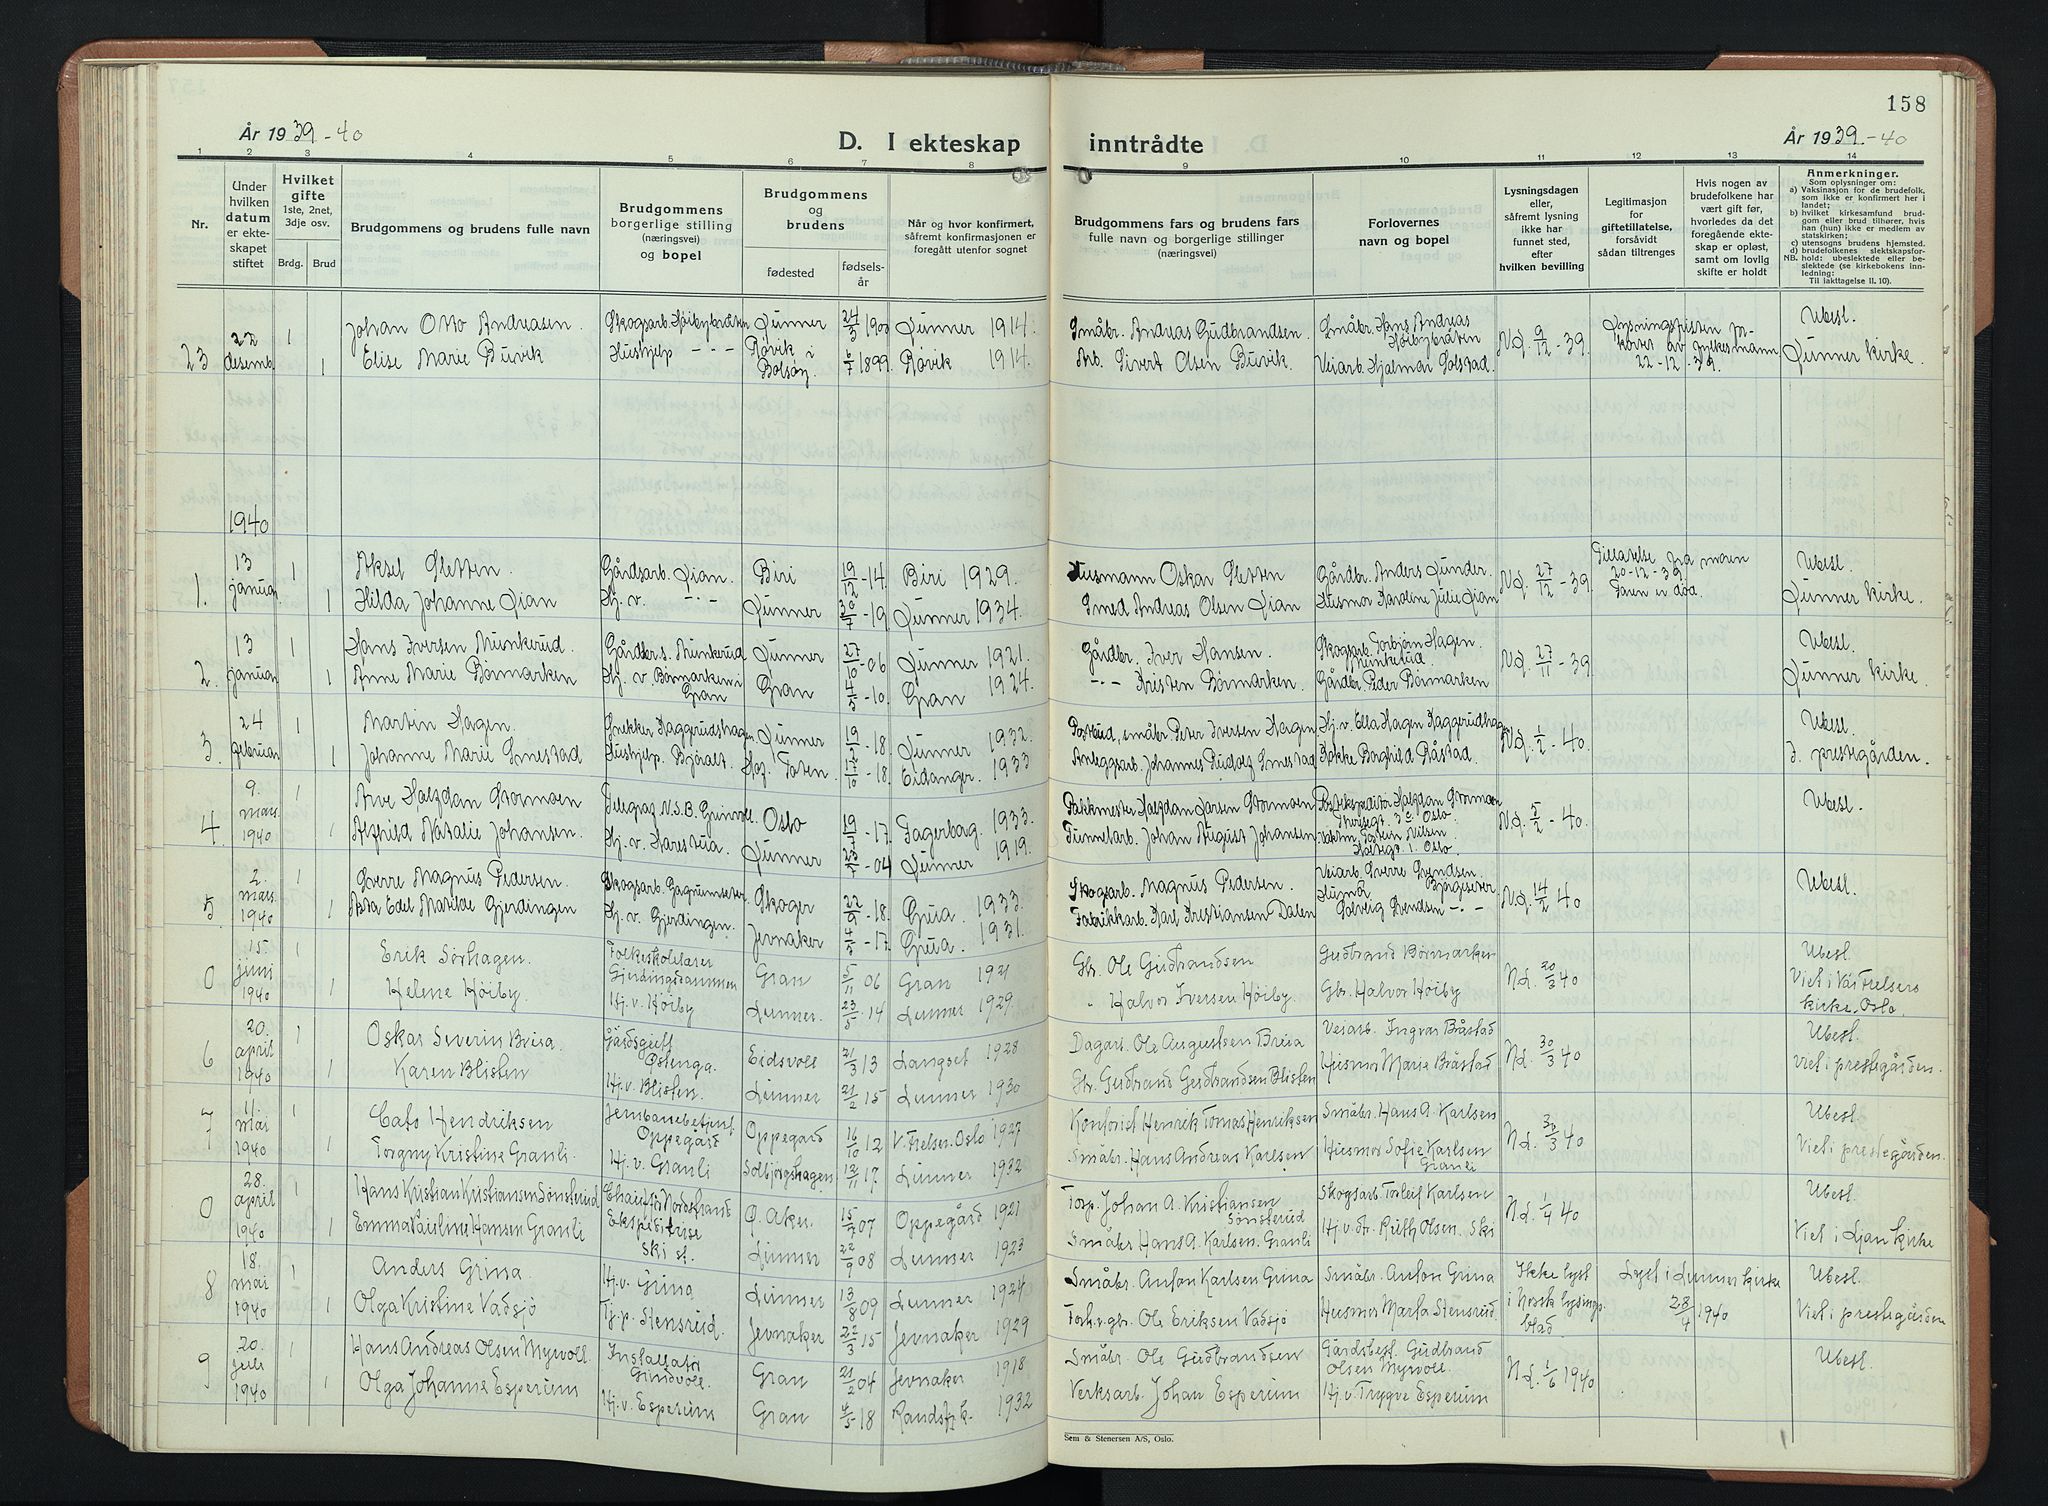 158
År 1939-40
D. I ekteskap inntrådte
År 1939-40
1 2 3 4 5 6 7 8 9 10 11 12 13 14
Nr.
Under hvilken datum er ekteskapet stiftet
Hvilket gifte 1ste, 2net, 3dje osv.
Brdg. Brud
Brudgommens og brudens fulle navn
Brudgommens borgerlige stilling (næringsvei) og bopel
Brudgommens og brudens
fødested
fødselsår
Når og hvor konfirmert, såfremt konfirmasjonen er foregått utenfor sognet
Brudgommens fars og brudens fars fulle navn og borgerlige stillinger (næringsvei)
Forlovernes navn og bopel
Lysningsdagen eller, såfremt lysning ikke har funnet sted, efter hvilken bevilling
Legitimasjon for giftetillatelse, forsåvidt sådan tiltrenges
Hvis nogen av brudefolkene har vært gift før, hvorledes da det foregående ekteskap er opløst, samt om lovlig skifte er holdt
Anmerkninger.
Som oplysninger om:
a) Vaksinasjon for de brudefolk, som ikke er konfirmert her i landet;
b) hvilket kirkesamfund brudgom eller brud tilhører, hvis han (hun) ikke er medlem av statskirken;
c) utensogns brudens hjemsted.
d) brudefolkenes slektskapsforhold: ubeslektede eller beslektede (se kirkebokens innledning:
NB.
Til iakttagelse II. 10).
23 22 desemb. 1 Johan Otto Andreasen. Skogsarb. Høibybråten Lunner 24/3 1900 Lunner 1914. Småbr. Andreas Gudbrandsen. Småbr. Hans Andreas Høibybråten N.d. 9/12-39. Ubesl.
1 Elise Marie Buvik Hushjelp - - - Røvik i Bolsøy. 6/7 1899 Røvik 1914. Arb. Sivert Olsen Buvik. Veiarb. Hjalmar Solstad. 22-12-39. Lunner kirke.
1940
1. 13 januar. 1 Aksel Sletten. Gårdsarb. Qian. Biri 19/12-14. Biri 1929. Husmann Oskar Sletten Gårdbr. Anders Lunder. N.d. 27/12-39. Tillatelse fra moren 20-12-39. Faren er død. Ubesl.
1 Hilda Johanne Qian Hj. v. - - Lunner 30/7-19. Lunner 1934. Smed Andreas Olsen Qian Husmor Karoline Julie Qian Lunner kirke.
2. 13 januar 1 Hans Iversen Munkerud. Gårdbr.s. Munkerud Lunner 27/10-06 Lunner 1921. Gårdbr. Iver Hansen. Skogsarb. Torbjørn Hagen. Munkerud. N.d. 27/11-39 Ubesl.
1 Anne Marie Børmarken Hj. v. Børmarken i Gran Gran 4/5-10. Gran 1924. - - - Kristen Børmarken. Gårdbr. Peder Børmarken Lunner kirke.
3. 24 februar 1 Martin Hagen. Snekker Haggerudshagen Lunner 19/2-18. Lunner 1932. Postbud, småbr. Peter Iversen Hagen Hj. v. Ella Hagen Haggerudhag. N.d. 1/2-40. Ubesl.
1 Johanne Marie Smestad Hushjelp Bjøralt. Toten. 17/10-18. Eidanger. 1933 Anleggsarb. Johannes Rudolf Smestad Kokke Borghild Råstad. I prestegården.
4 9. mars. 1940 1 Arve Halfdan Stormoen Telegraf. N.S.B. Grinvoll Oslo 19/7-17. Fagerborg. 1933. Pakkmester Halfdan Larsen Stormoen Postekspeditør Halfdan Stormoen Oslo. N.d. 5/2-40. Ubesl.
1 Alfhild Natalie Johansen. Hj. v. Harestua. Lunner 23/7-04 Lunner 1919. Tunnelarb. Johan August Johansen Nilsen Oslo.
5. 2. mars. 1940 1 Sverre Magnus Pedersen. Skogsarb. Skoger 22/9-18. Grua. 1933. Skogsarb. Magnus Pedersen. Veiarb. Sverre Svendsen. N.d. 14/2 40 Ubesl.
1 Asta Edel Matilde Gjerdingen Hj. v. Gjerdingen. Jevnaker 4/5-17. Grua. 1931. Fabrikkarb. Karl Kristiansen Dalen Solveig Svendsen - - -
0 15. juni 1940 1 Erik Sørhagen. Folkeskolelærer Gjerdingsdammen Gran 5/11 06 Gran 1921 Gbr. Ole Gudbrandsen Gudbrand Børmarken N.d. 20/3 40 Ubesl.
1 Helene Høiby. Hj. v. Høiby Lunner. 23/5-14 Lunner 1929. " Halvor Iversen Høiby. Gbr. Halvor Høiby Viet i Vår Frelsers kirke. Oslo.
6 20. april 1940 1 Oskar Severin Brua. Gårdsgutt Østenga. Eidsvoll 21/3 13 Langset 1928 Dagarb. Ole Augustsen Brua Veiarb. Ingvar Båstad N.d. 30/3 40 Ubesl.
1 Karen Blisten Hj. v. Blisten. Lunner 21/2 15 Lunner 1930 Gbr. Gudbrand Gudbrandsen Blisten Husmor Marie Båstad viet i prestegården.
7 11. mai 1940 1 Cato Hendriksen Jernbanebetjent Oppegård Oppegård 16/10 12 V. Frelser. Oslo 1927 Henrik Tomas Henriksen Småbr. Hans A. Karlsen N.d. 30/3 40 Ubesl.
1 Torgny Kristine Granli. Hj. v. Granli Solbjørgshagen 12/11 17 Lunner 1932 Småbr. Hans Andreas Karlsen Husmor Sofie Karlsen Granli Viet i prestegården.
0 28. april 1940 1 Hans Kristian Kristiansen Sønsterud Chauffør Nordstrand Ø. Aker. 15/7 07 Oppegård 1921 Torp. Johan A. Kristiansen Sønsterud Skogsarb. Torleif Karlsen N.d. 1/4 40 Ubesl.
1 Emma Pauline Hansen Granli Ekspeditrise Ski st. Lunner 22/9 08 Lunner 1923 Småbr Hans A. Karlsen. Granli Hj. v. fr. Ruth Olsen. Ski Viet i Ljan kirke
8 18. mai 1940 1 Anders Grina. Hj. v. Grina Lunner 13/8 09 Lunner 1924 Småbr. Anton Karlsen Grina Småbr. Anton Grina Ikke lyst i Norsk lysings blad Lyst i Lunner kirke 28/4 1940 Ubesl.
1 Olga Kristine Vadsjø Tj. p. Stensrud. Jevnaker 22/3 15 Jevnaker 1929 Forh.v. gbr. Ole Eriksen Vadsjø Husmor Marta Stensrud Viet i prestegården
9 20. juli 1940 1 Hans Andreas Olsen Myrvoll. Installatør Grindvoll. Gran 21/2 04 Jevnaker 1918 Småbr. Ole Gudbrandsen Gårdsbest. Gudbrand Olsen Myrvoll. N.d. 1/6 1940 Ubesl.
1 Olga Johanne Esperum Hj. v. Esperum Gran 4/5-18 Randsfj. k. 1932 Verksarb. Johan Esperum Hj. v. Trygve Esperum
Sem & Stenersen A/S, Oslo.